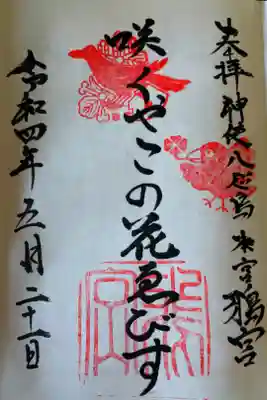 奉拝 神使八咫烏 本宮 鴉宮
咲くやこの花ゑびす
令和四年五月二十一日